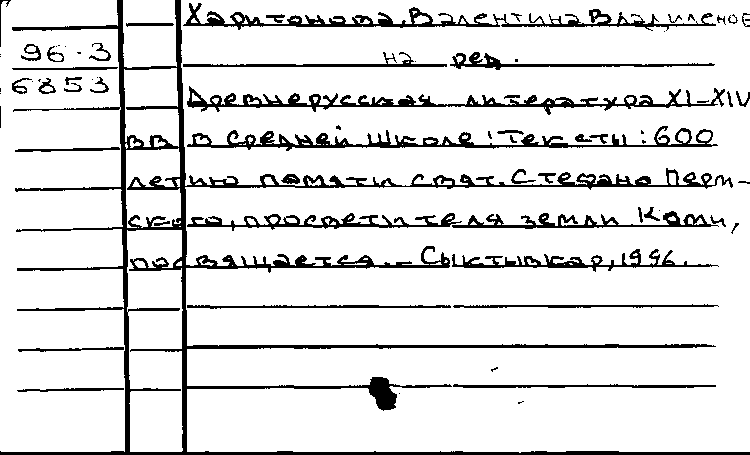 Харитонова, Валентина Владиленов
96-3
на ред.
6853
Древнерусская литература XI-XIV
вв в средней школе: Тексты: 600
летию памяти свят. Стефано Перм-
ского, просветителя земли Коми,
посвящается. - Сыктывкар, 1996.